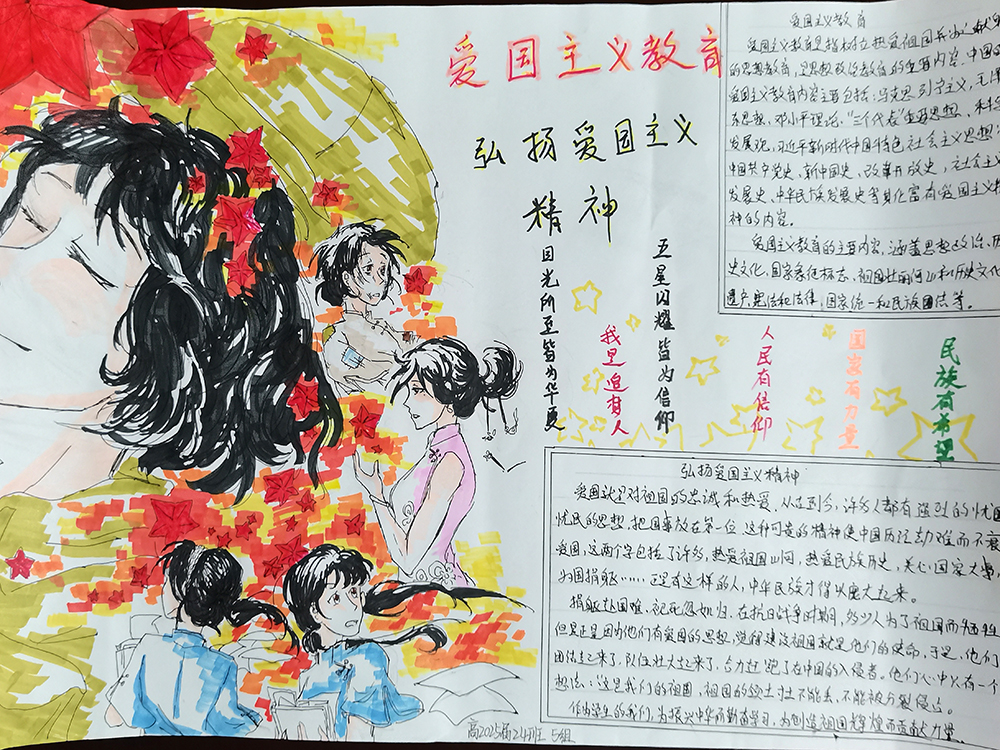 爱国主义教育
弘扬爱国主义
精神
目光所至皆为华夏
五星闪耀皆为信仰
我是追梦人
人民有信仰
国家有力量
民族有希望
爱国主义教育
爱国主义教育是指树立热爱祖国并为之献
的思想教育,是思想政治教育的重要内容.中国
爱国主义教育内容主要包括:马克思列宁主义,毛泽
东思想、邓小平理论,“三个代表”重要思想、科
发展观,习近平新时代中国特色社会主义思想
中国共产党史,新中国史、改革开放史,社会主
发展史、中华民族发展史等具化富有爱国主义
神的内容。
爱国主义教育的主要内容,涵盖思想政治、历
史文化,国家象征标志、祖国壮丽河山和历史文化
遗产,宪法和法律,国家统一和民族团结等。
弘扬爱国主义精神
爱国就是对祖国的忠诚和热爱.从古到今,许多人都有强烈的忧国
忧民的思想.把国事放在第一位.这种可贵的精神使中国历经劫难而不衰
爱国,这两个字包括了许多,热爱祖国山河,热爱民族历史,关心国家大事,
为国捐躯……正是有这样的人,中华民族才得以庞大起来。
捐躯赴国难,视死忽如归.在抗日战争时期,多少人为了祖国而牺牲
但是正是因为他们有爱国的思想.觉得建设祖国就是他们的使命,于是,他们
团结起来了,队伍壮大起来了.合力赶跑了在中国的入侵者.他们心中只有一个
想法:这是我们的祖国,祖国的领土社不能丢.不能被分裂侵占。
作为学生的我们,为振兴中华而勤奋学习,为创造祖国辉煌而贡献力量.
高2025届24班 5组